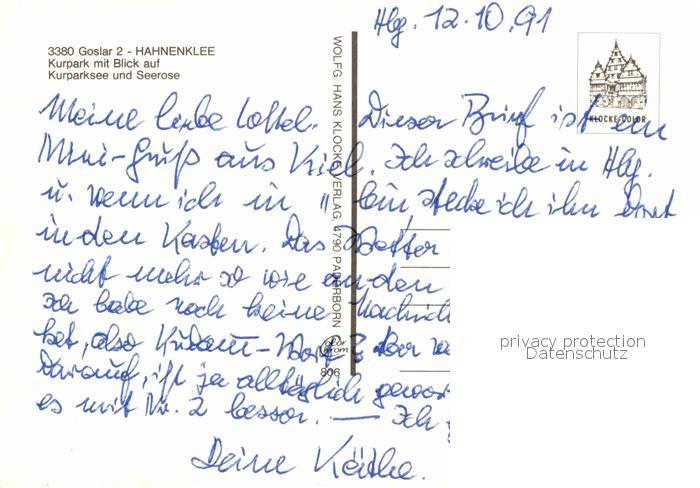 Hbg. 12.10.91
3380 Goslar 2 - HAHNENKLEE
Kurpark mit Blick auf
Kurparksee und Seerose
KLOCKE-COLOR
WOLFG. HANS KLOCKE VERLAG, 4790 PADERBORN
806
Meine liebe Lottel. Dieser Brief ist ein
Mini-Gruß aus Kiel. Ich schreibe in Hbg.
u. wenn ich in " bin stecke ich ihn dort
in den Kasten. Das Wetter
nicht mehr so wie an den
Ich habe noch keine Nachrich
bet, also
darauf, ist ja alltäglich gewor
es mit Nr. 2 besser. — Ich
Deine Käthe.
privacy protection
Datenschutz